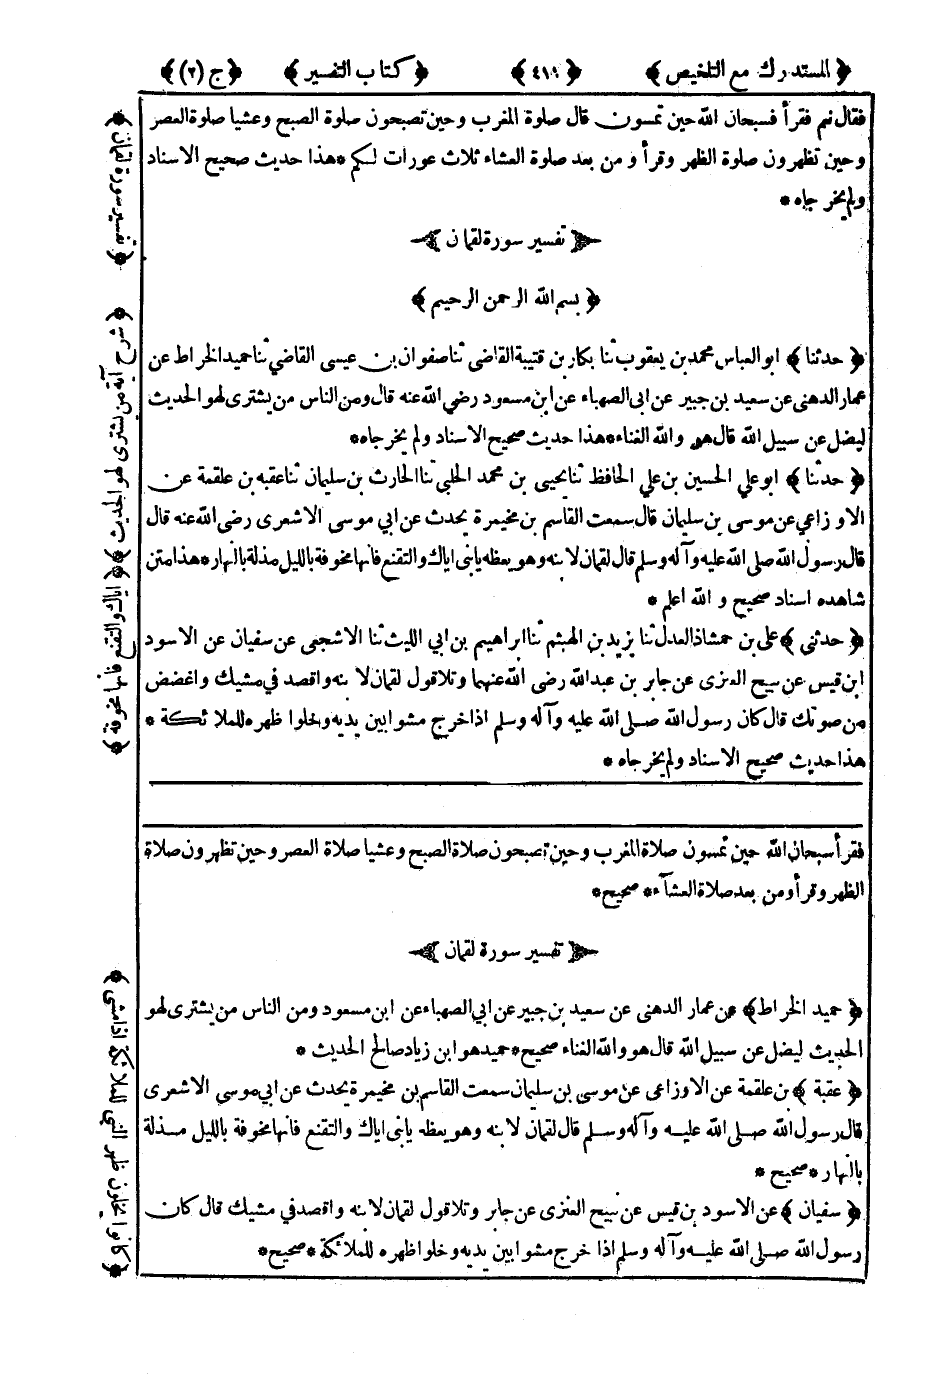 ﴿ المستدرك مع التلخيص ﴾ ﴿ ٤١١ ﴾ ﴿ كتاب التفسير ﴾ ﴿ ج (٢) ﴾
فقال نعم فقرأ فسبحان الله حين تمسون قال صلوة المغرب وحين تصبحون صلوة الصبح وعشيا صلوة العصر
وحين تظهرون صلوة الظهر وقرأ و من بعد صلوة العشاء ثلاث عورات لكم * هذا حديث صحيح الاسناد
ولم يخرجاه *
﴿ تفسير سورة لقمان ﴾
﴿ بسم الله الرحمن الرحيم ﴾
﴿ حدثنا ﴾ ابو العباس محمد بن يعقوب ثنا بكار بن قتيبة القاضي ثنا صفوان بن عيسى القاضي ثنا حميد الخراط عن
عمار الدهنى عن سعيد بن جبير عن ابى الصهباء عن ابن مسعود رضي الله عنه قال ومن الناس من يشترى لهو الحديث
ليضل عن سبيل الله قال هو والله الغناء * هذا حديث صحيح الاسناد ولم يخرجاه *
﴿ حدثنا ﴾ ابو علي الحسين بن علي الحافظ ثنا يحيى بن محمد الحلبي ثنا الحارث بن سليمان ثنا عقبه بن علقمة عن
الاوزاعي عن موسى بن سليمان قال سمعت القاسم بن مخيمرة يحدث عن ابي موسى الاشعرى رضى الله عنه قال
قال رسول الله صلى الله عليه وآله وسلم قال لقمان لابنه وهو يعظه يابنى اياك والتقنع فانها مخوفة بالليل مذلة بالنهار * هذا متن
شاهده اسناد صحيح و الله اعلم *
﴿ حدثنى ﴾ على بن حمشاذ العدل ثنا يزيد بن الهيثم ثنا ابراهيم بن ابي الليث ثنا الاشجعى عن سفيان عن الاسود
ابن قيس عن نبيح العنزى عن جابر بن عبد الله رضى الله عنهما وتلا قول لقمان لابنه واقصد في مشيك واغضض
من صوتك قال كان رسول الله صلى الله عليه وآله وسلم اذا خرج مشوا بين يديه وخلوا ظهره للملائكة *
هذا حديث صحيح الاسناد ولم يخرجاه *
فقرأ سبحان الله حين تمسون صلاة المغرب وحين تصبحون صلاة الصبح وعشيا صلاة العصر وحين تظهرون صلاة
الظهر وقرأ ومن بعد صلاة العشآء * صحيح *
﴿ تفسير سورة لقمان ﴾
﴿ حميد الخراط ﴾ عن عمار الدهنى عن سعيد بن جبير عن ابي الصهباء عن ابن مسعود ومن الناس من يشترى لهو
الحديث ليضل عن سبيل الله قال هو والله الغناء صحيح * حميد هو ابن زياد صالح الحديث *
﴿ عقبة ﴾ بن علقمة عن الاوزاعى عن موسى بن سليمان سمعت القاسم بن مخيمرة يحدث عن ابي موسى الاشعرى
قال رسول الله صلى الله عليه وآله وسلم قال لقمان لابنه وهو يعظه يابنى اياك والتقنع فانها مخوفة بالليل مذلة
بالنهار * صحيح *
﴿ سفيان ﴾ عن الاسود بن قيس عن نبيح العنزى عن جابر وتلا قول لقمان لابنه واقصد في مشيك قال كان
رسول الله صلى الله عليه وآله وسلم اذا خرج مشوا بين يديه وخلوا ظهره للملائكة * صحيح *
﴿ تفسير سورة لقمان ﴾
﴿ شرح آية من يشترى لهو الحديث ﴾
﴿ اياك والتقنع فانها مخوفة ﴾
﴿ كانوا يخلون ظهر النبي للملائكة اذا مشى ﴾